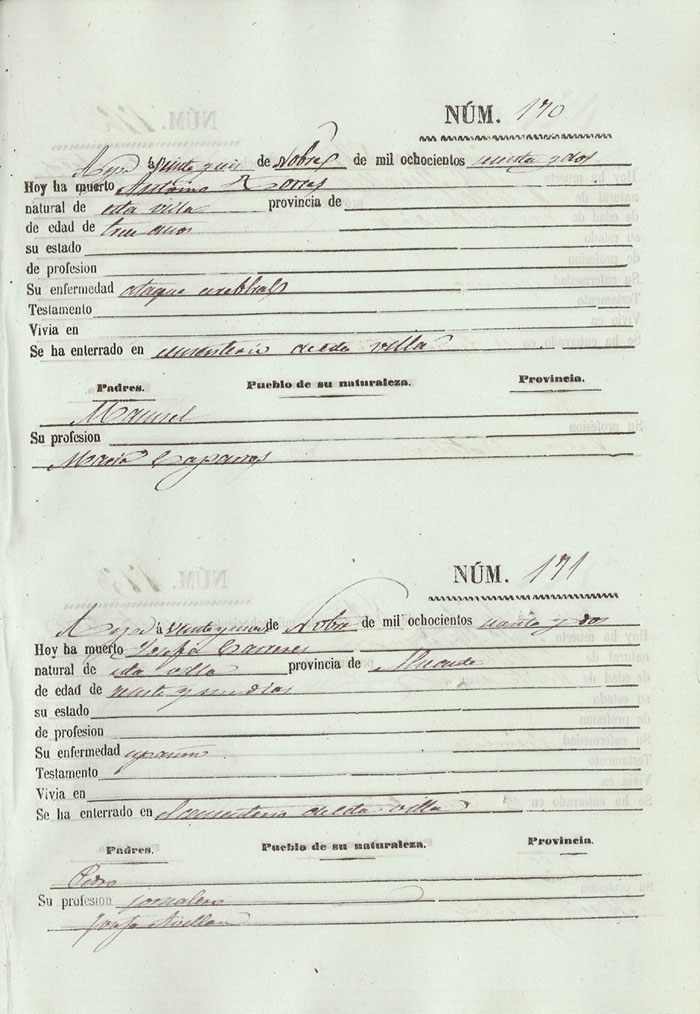 NÚM. 170
á veinte y seis de Nobre de mil ochocientos y dos
Hoy ha muerto Antonio Torres
natural de esta villa provincia de
de edad de trece años
su estado
de profesion
Su enfermedad ataque cerebral
Testamento
Vivia en
Se ha enterrado en cementerio de esta villa
Padres. Pueblo de su naturaleza. Provincia.
Manuel
Su profesion
Maria Caparros
NÚM. 171
á veinte y de Nobre de mil ochocientos y dos
Hoy ha muerto Josefa Carreres
natural de esta villa provincia de Alicante
de edad de veinte y dias
su estado
de profesion
Su enfermedad
Testamento
Vivia en
Se ha enterrado en cementerio de esta villa
Padres. Pueblo de su naturaleza. Provincia.
Pedro
Su profesion jornalero
Josefa